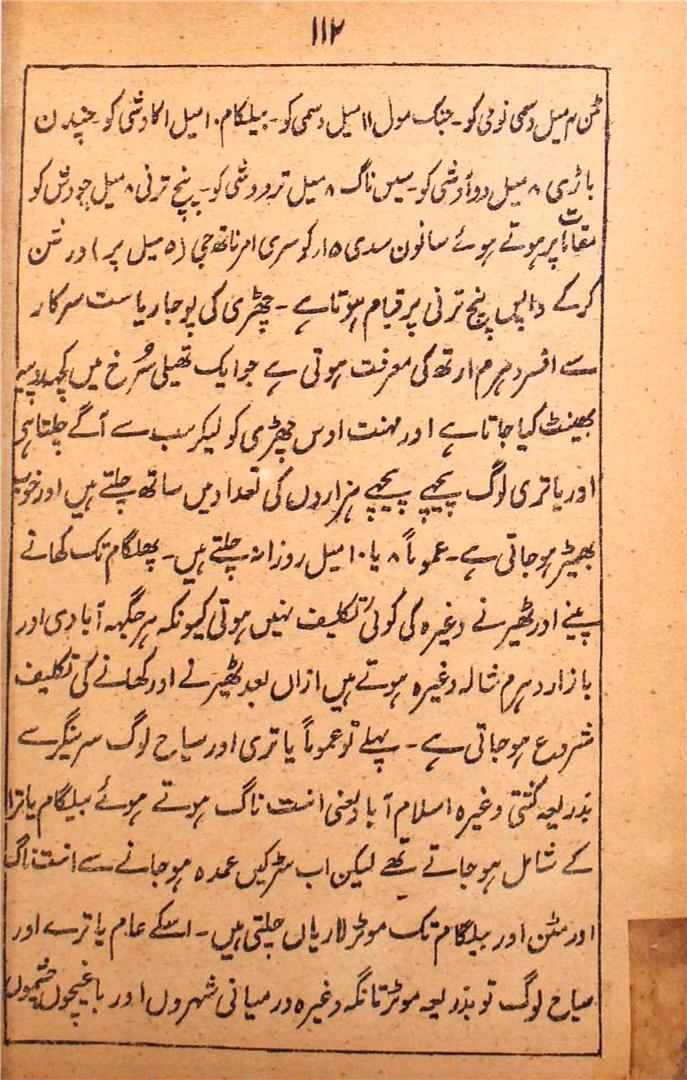 ۱۱۲
مٹن ۴ میل دسمی نومی کو۔ جنگ مول ۱۱ میل دسمی کو۔ بیلگام ۱۰ میل اکادشی کو۔ چندن
باڑی ۸ میل دوآدشی کو۔ سیس ناگ ۸ میل ترودشی کو۔ پنچ ترنی ۸ میل چودش کو
مقامات پر ہوتے ہوئے سانون سدی ۱۵ ار کو سری امرناتھ جی (۵ میل پر) درشن
کرکے واپس پنچ ترنی پر قیام ہوتا ہے۔ چھڑی کی پوجا ریاست سرکار
سے افسر دہرم ارتھ کی معرفت ہوتی ہے جو ایک تھیلی سُرخ میں کچھ روپیہ
بھینٹ کیا جاتا ہے اور مہنت اوس چھڑی کو لیکر سب سے آگے چلتا ہی
اور یاتری لوگ پیچھے پیچھے ہزاروں کی تعداد میں ساتھ چلتے ہیں اور خوب
بھیڑ ہو جاتی ہے۔ عموماً ۸ یا ۱۰ میل روزانہ چلتے ہیں۔ پہلگام تک کھانے
پینے اور ٹھیرنے وغیرہ کی کوئی تکلیف نہیں ہوتی کیونکہ ہر جگہہ آبادی اور
بازار دہرم شالہ وغیرہ ہوتے ہیں ازاں بعد ٹھیرنے اور کھانے کی تکلیف
شروع ہو جاتی ہے۔ پہلے تو عموماً یاتری اور سیاح لوگ سرینگر سے
بذریعہ کشتی وغیرہ اسلام آباد یعنی اننت ناگ ہوتے ہوئے بیلگام یاترا
کے شامل ہو جاتے تھے لیکن اب سڑکیں عمدہ ہو جانے سے اننت ناگ
اور مٹن اور بیلگام تک موٹر لاریاں چلتی ہیں۔ اسکے عام یاترے اور
سیاح لوگ تو بذریعہ موٹر تانگہ وغیرہ درمیانی شہروں اور باغیچوں چشموں